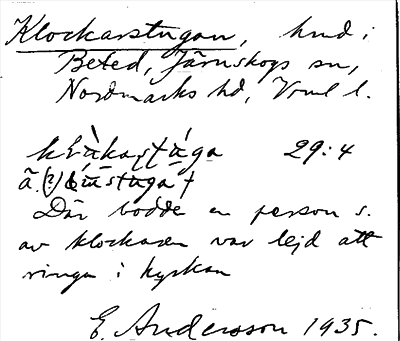 Klockarstugan, hmd i
Beted, Järnskogs sn,
Nordmarks hd, Vrml l.
29:4
Där bodde en person s.
av klockaren var lejd att
ringa i kyrkan
E. Andersson 1935.